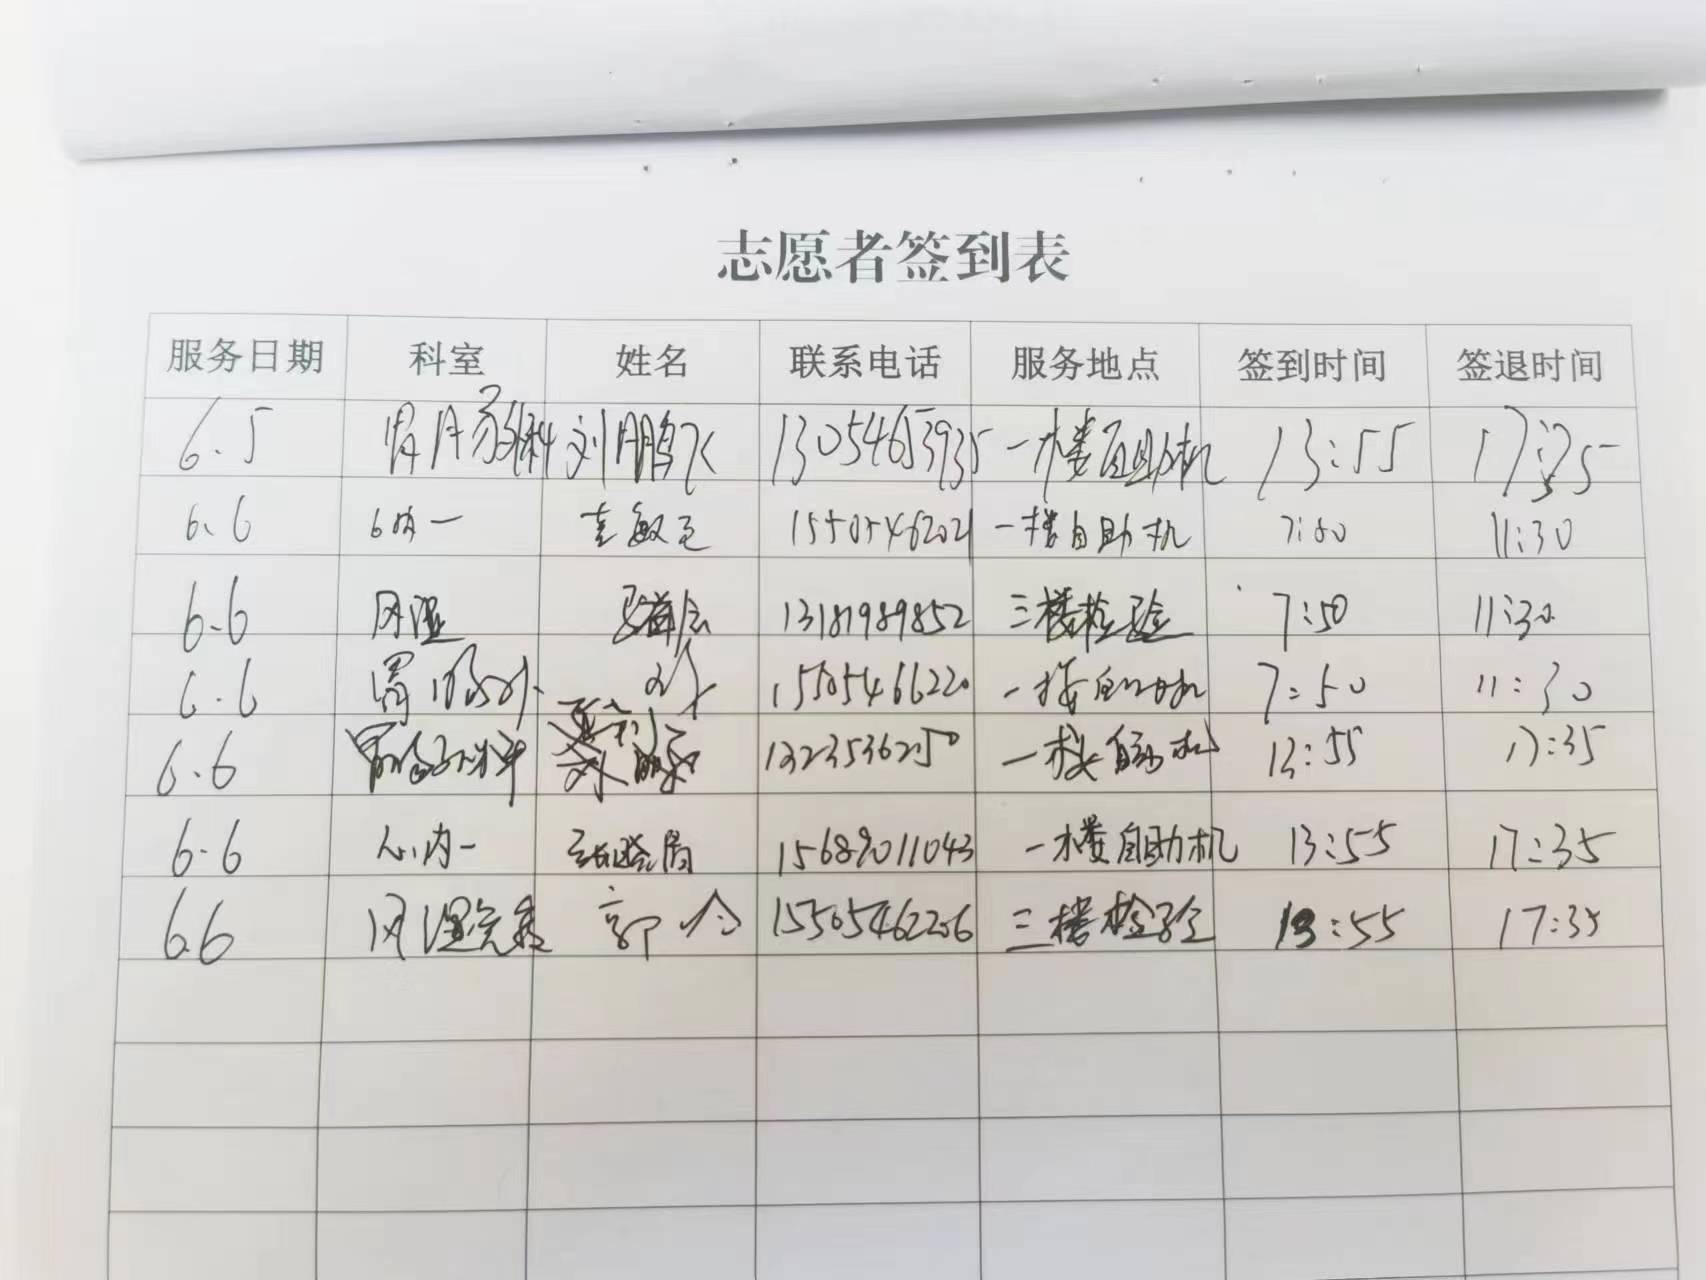 志愿者签到表
服务日期 科室 姓名 联系电话 服务地点 签到时间 签退时间
6.5 胃肠外科 刘鹏飞 13054653935 一楼自助机 13:55 17:35
6.6 心内一 15505462021 一楼自助机 7:50 11:30
6.6 风湿 13181989852 三楼检验 7:50 11:30
6.6 胃肠外 15505466220 一楼自助机 7:50 11:30
6.6 1323536250 一楼自助机 13:55 17:35
6.6 心内一 15689011043 一楼自助机 13:55 17:35
6.6 风湿免疫 郭 15505462206 三楼检验 13:55 17:35